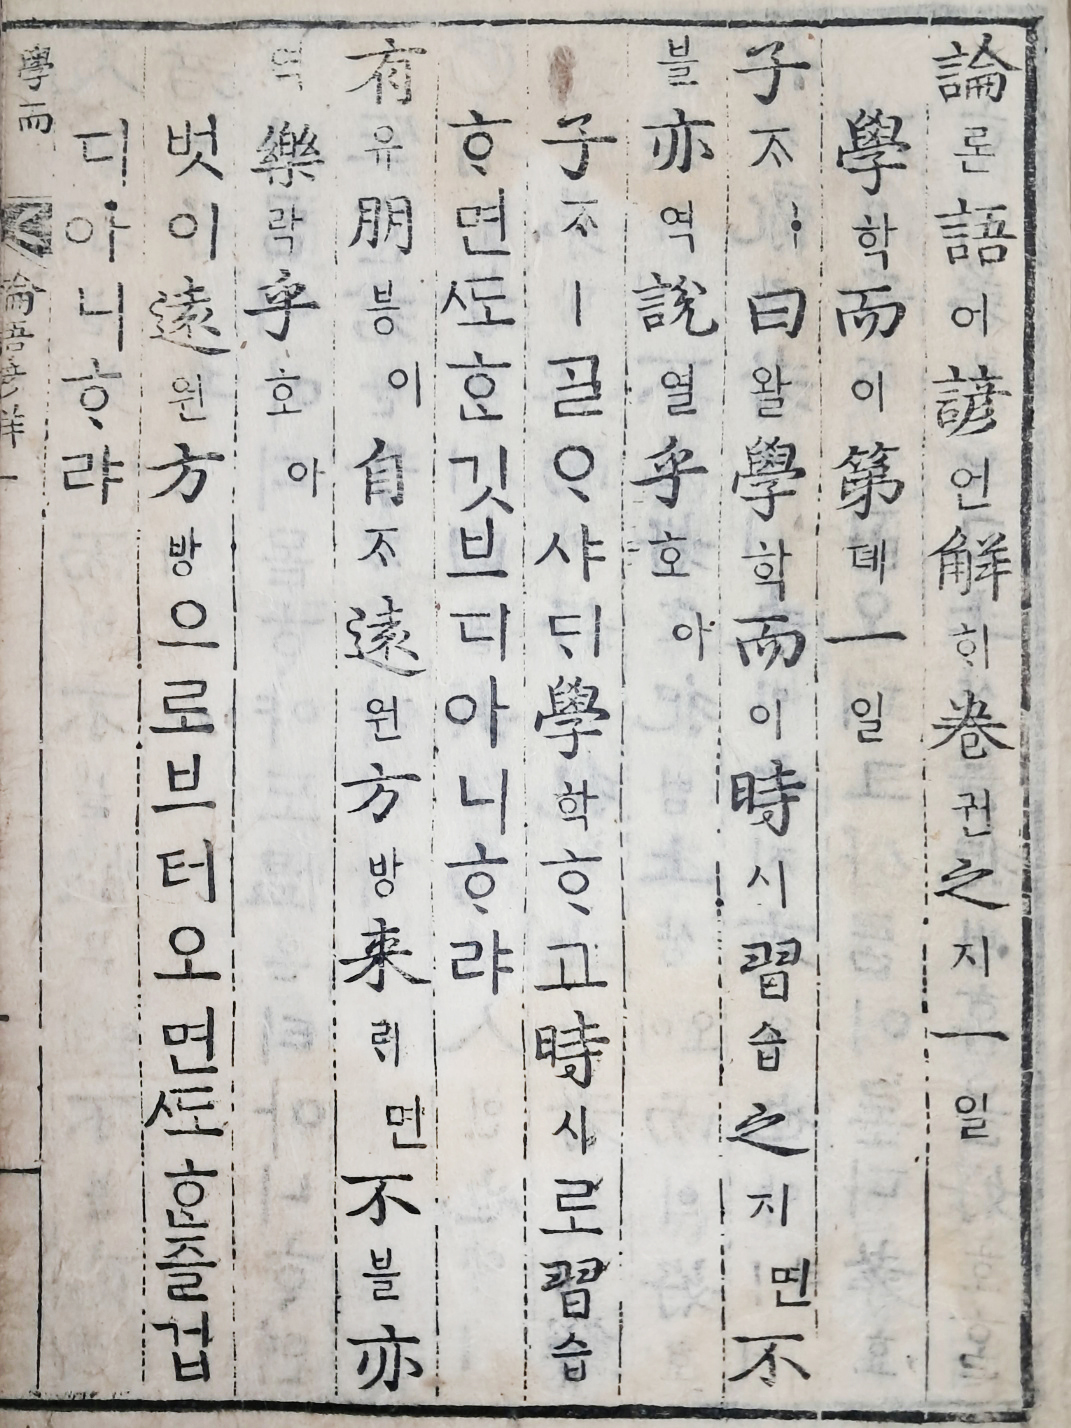 論론語어諺언解ᄒᆡ卷권之지一일
學학而이第뎨一일
子ᄌᆞㅣ曰왈學학而이時시習습之지면不
블亦역說열乎호아
子ᄌᆞㅣᄀᆞᆯᄋᆞ샤ᄃᆡ學학ᄒᆞ고時시로習습
ᄒᆞ면ᄯᅩᄒᆞᆫ깃브디아니ᄒᆞ랴
有유朋븡이自ᄌᆞ遠원方방來ᄅᆡ면不블亦
역樂락乎호아
벗이遠원方방으로브터오면ᄯᅩᄒᆞᆫ즐겁
디아니ᄒᆞ랴
學而 論語諺解一